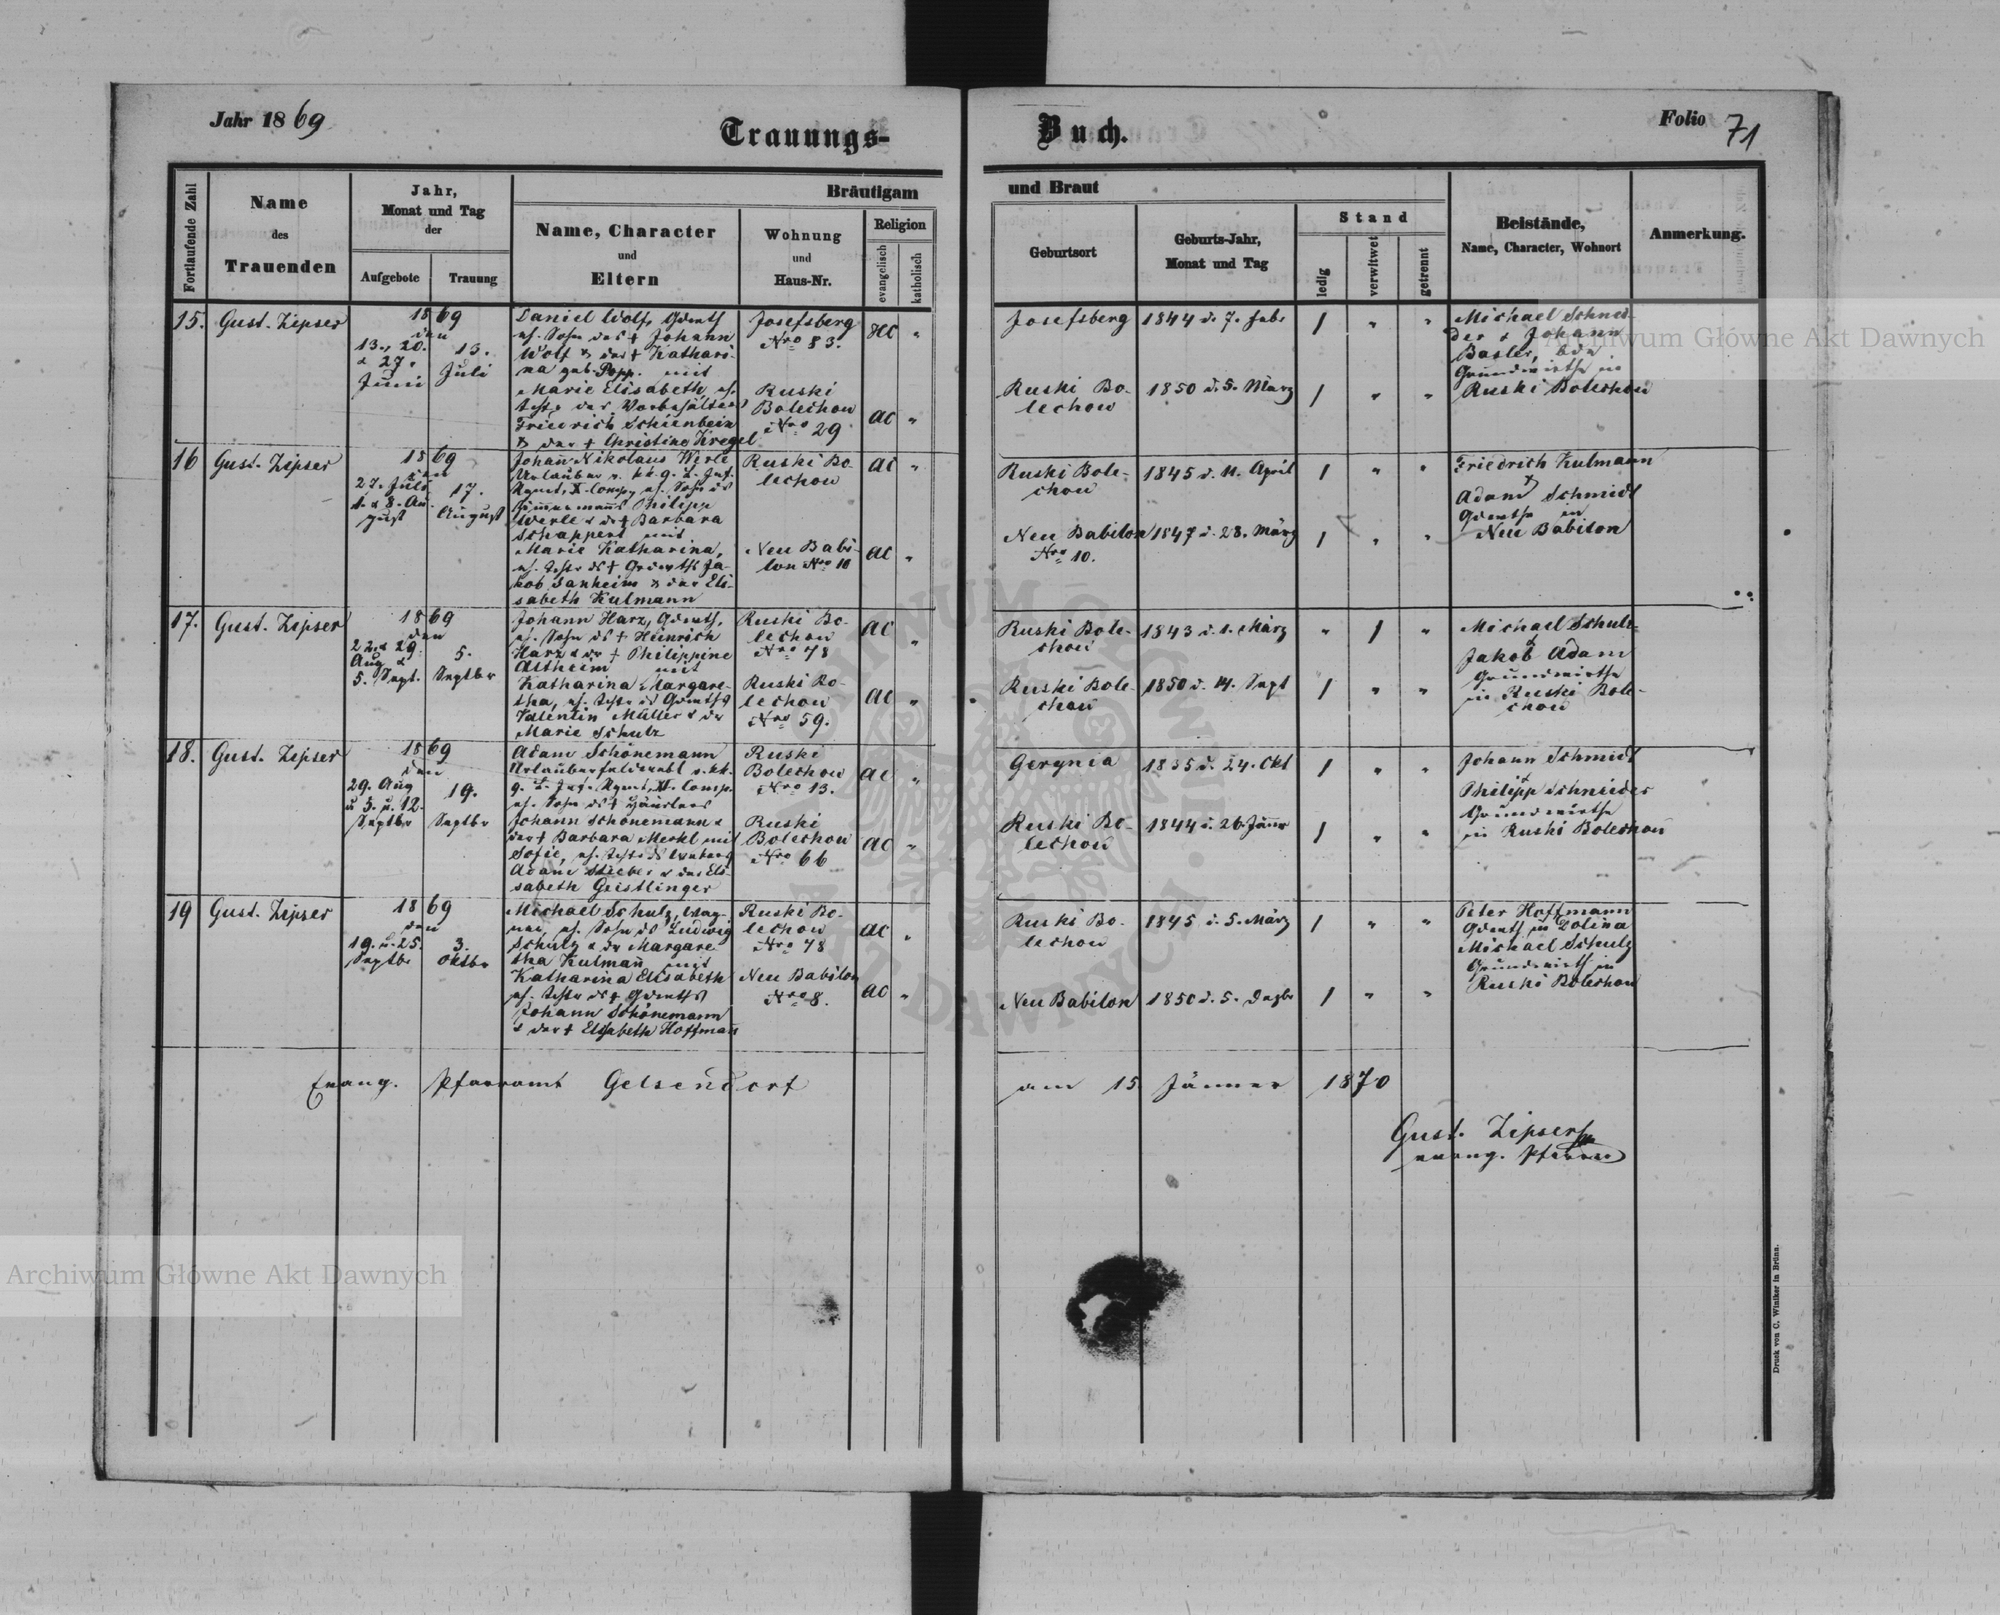 Jahr 1869
Trauungs-
Buch.
Folio 71
Fortlaufende Zahl
Name
des
Trauenden
Jahr,
Monat und Tag
der
Aufgebote
Trauung
Bräutigam
und Braut
Name, Character
und
Eltern
Wohnung
und
Haus-Nr.
Religion
evangelisch
katholisch
Geburtsort
Geburts-Jahr,
Monat und Tag
Stand
ledig
verwitwet
getrennt
Beistände,
Name, Character, Wohnort
Anmerkung.
15.
Gust. Zipser
1869
den
13., 20.
& 27.
Juni
13.
Juli
Daniel Wolf,
Sohn des † Johann
Wolf & der † Kathari-
na geb. Popp. mit
Marie Elisabeth,
Friedrich Schienbein
& der † Christine Kregel
Josefsberg
Nro 83.
Ruski
Bolechow
Nro 29
HC "
ac "
Josefsberg
Ruski Bo-
lechow
1844 d. 7. Febr
1850 d. 5. März
/ " "
/ " "
Michael Schnei-
der & Johann
Basler,
Grundwirthe in
Ruski Bolechow
16
Gust. Zipser
1869
den
27. Juli
1. & 8. Au-
gust
17.
August
Johann Nikolaus Werle
Urlauber
Philipp
Werle & der † Barbara
Schappert mit
Marie Katharina,
Ja-
kob Sanheim & der Eli-
sabeth Kulmann
Ruski Bo
lechow
Neu Babi-
lon Nro 10
ac "
ac "
Ruski Bole-
chow
Neu Babilon
Nro 10.
1845 d. 11. April
1847 d. 28. März
/ " "
/ " "
Friedrich Kulmann
&
Adam Schmidt
in
Neu Babilon
17.
Gust. Zipser
1869
den
22. & 29.
Aug &
5. Sept.
5.
Septbr
Johann Harz,
Sohn ds † Heinrich
Harz & der † Philippine
Altheim mit
Katharina Margare-
tha,
Valentin Müller & der
Marie Schulz
Ruski Bo-
lechow
Nro 78
Ruski Bo-
lechow
Nro 59.
ac "
ac "
Ruski Bole-
chow
Ruski Bole-
chow
1843 d. 1. März
1850 d. 14. Sept
" / "
/ " "
Michael Schulz
&
Jakob Adam
Grundwirthe
in Ruski Bole-
chow
18.
Gust. Zipser
1869
den
29. Aug
u 5. u. 12.
Septbr
19.
Septbr
Adam Schönemann
Johann Schönemann &
der † Barbara Merkl mit
Sofie,
Adam Stieber & der Eli-
sabeth Geistlinger
Ruski
Bolechow
Nro 13.
Ruski
Bolechow
Nro 66
ac "
ac "
Gerynia
Ruski Bo-
lechow
1835 d. 24. Okt
1844 d. 26. Jänner
/ " "
/ " "
Johann Schmidt
&
Philipp Schneider
Grundwirthe
in Ruski Bolechow
19
Gust. Zipser
1869
den
19. u. 25.
Septbr
3.
Oktbr
Michael Schulz, Wag-
ner, Sohn ds Ludwig
Schulz & der Margare
tha Kulman mit
Katharina Elisabeth
Johann Schönemann
& der † Elisabeth Hoffman
Ruski Bo-
lechow
Nro 78
Neu Babilon
Nro 8.
ac "
ac "
Ruski Bo-
lechow
Neu Babilon
1845 d. 5. März
1850 d. 5. Dezbr
/ " "
/ " "
Peter Hoffmann
in Dolina
Michael Schulz
Grundwirth in
Ruski Bolechow
Evang. Pfarramt Gelsendorf
am 15. Jänner 1870
Gust. Zipser
evang. Pfarrer
Druck von C. Winiker in Brünn.
Archiwum Główne Akt Dawnych
Archiwum Główne Akt Dawnych
ARCHIWUM GŁÓWNE AKT DAWNYCH